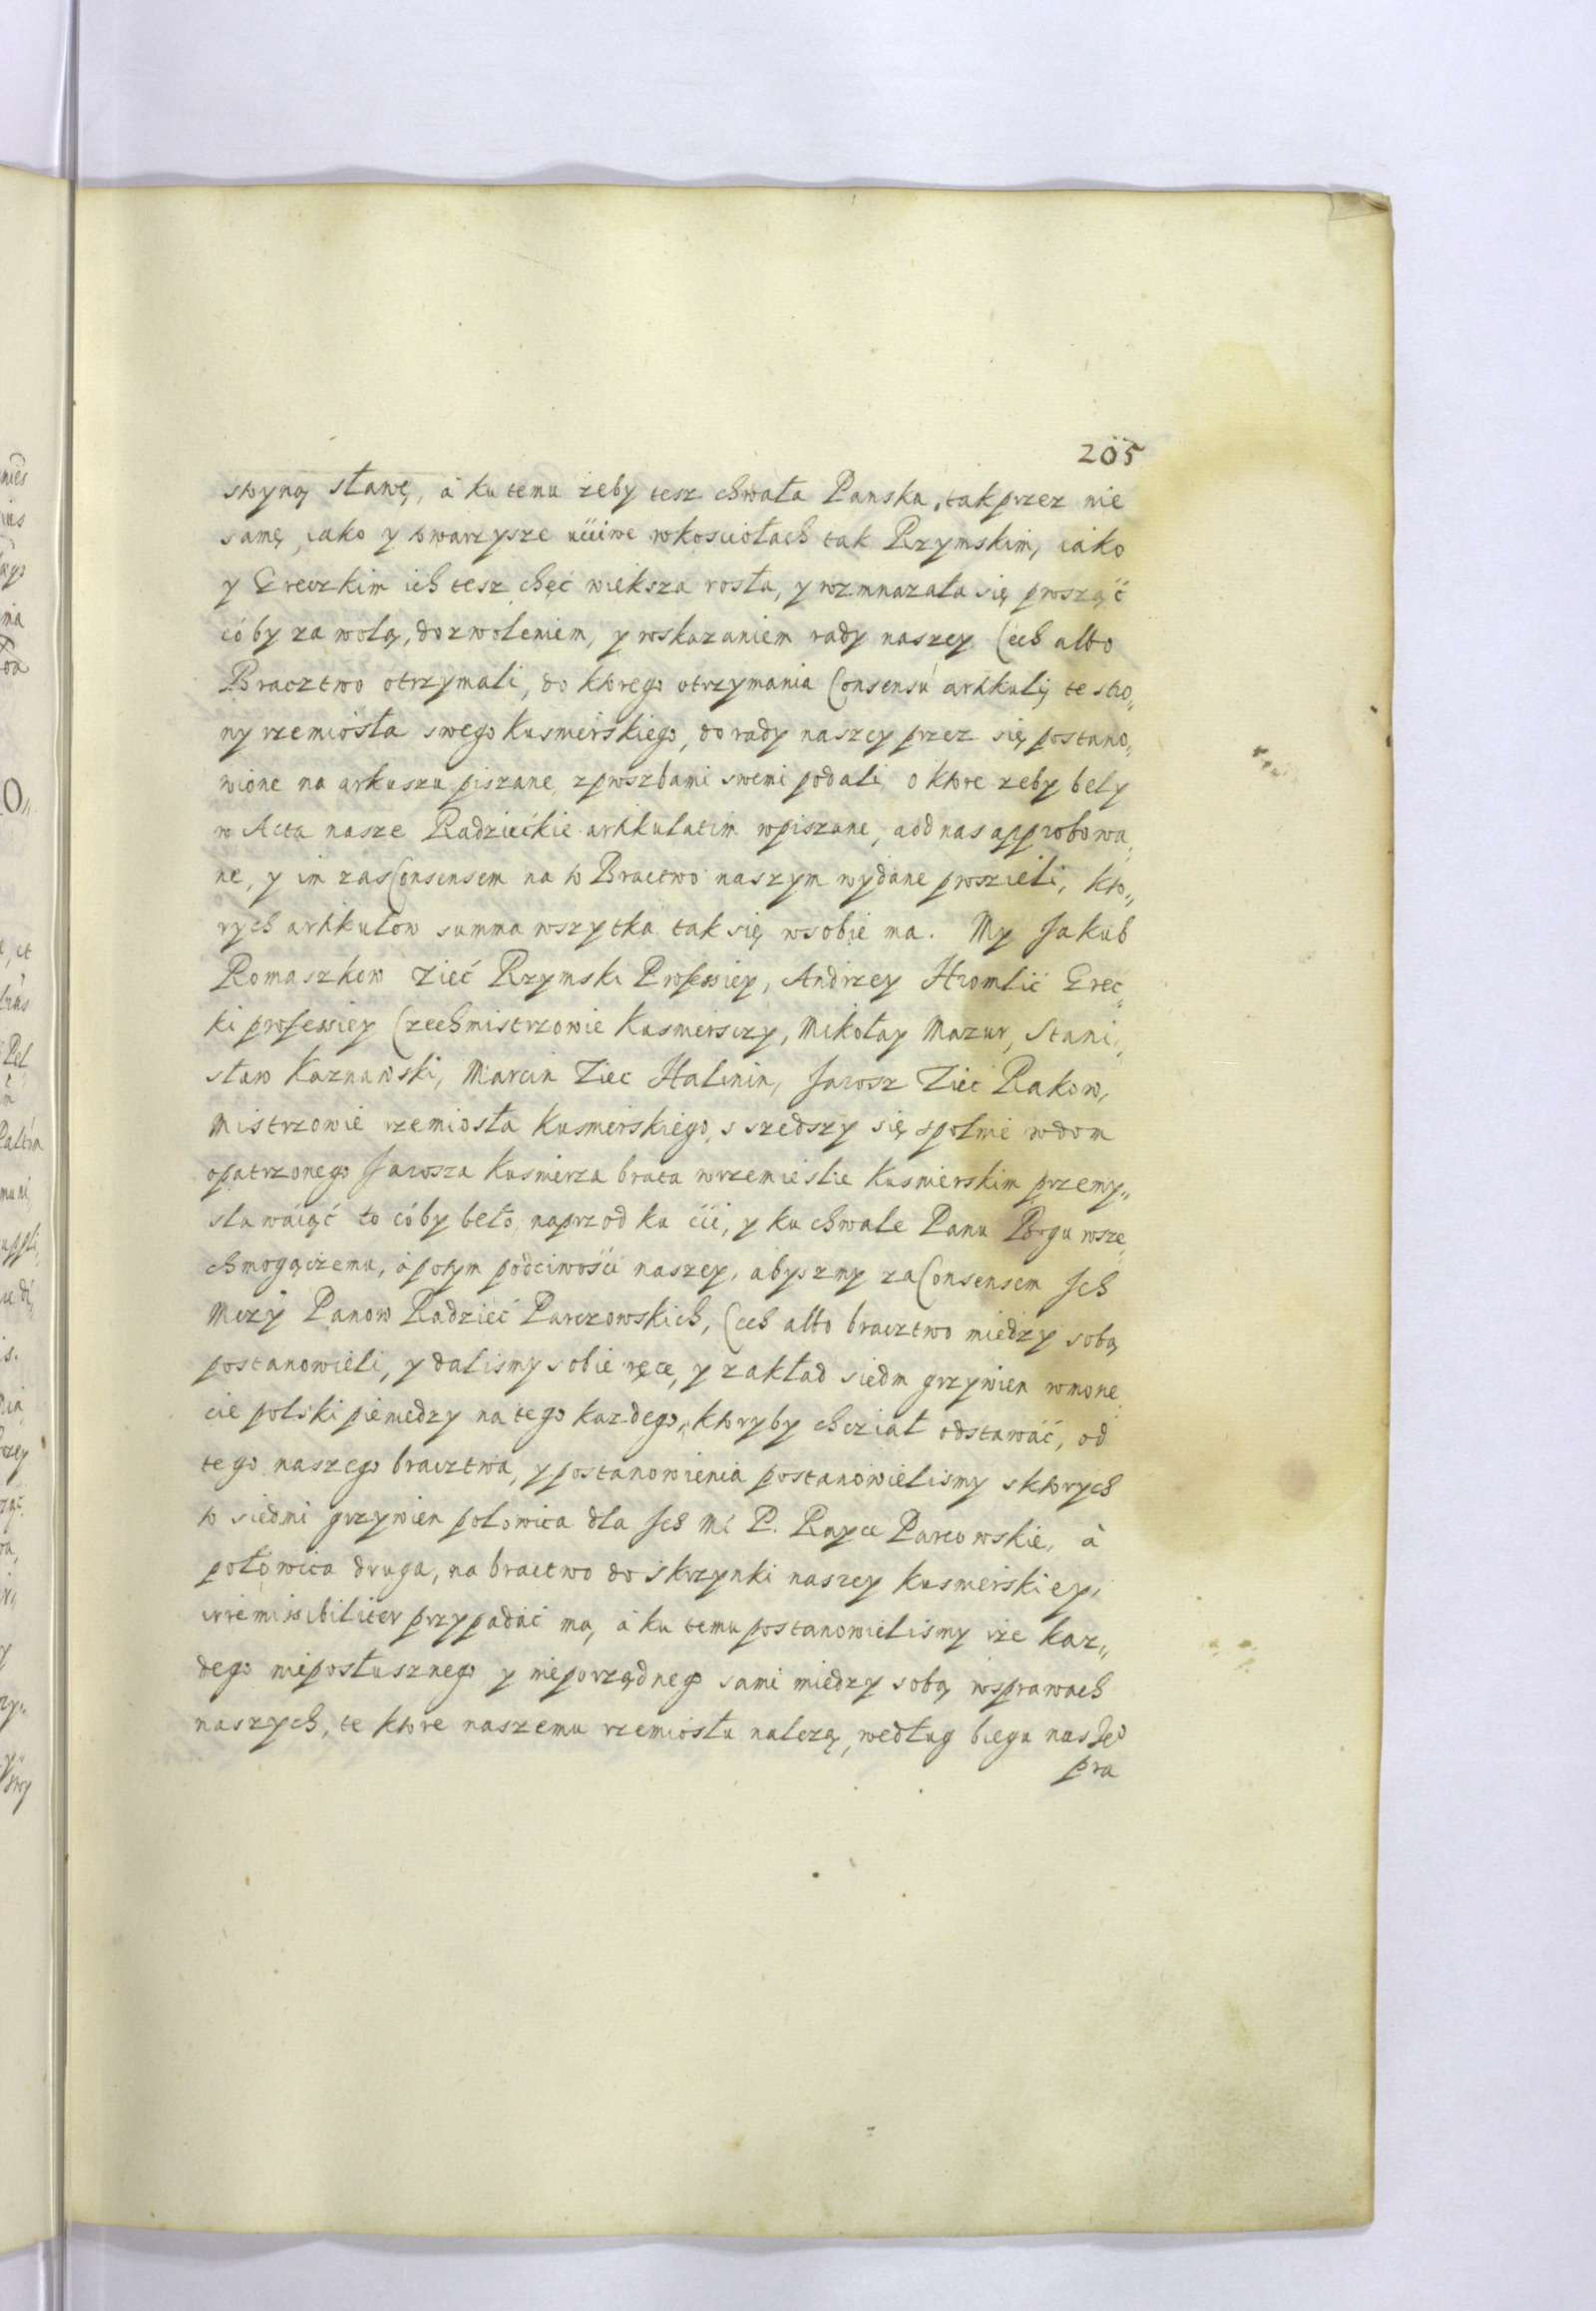 205
stwyną słanę, à ku temu żeby tesz chwała Panska, tak przez nie
samę, iako y towarzysze ućiwe wkosciołach tak Rzymskim, iako
y Greczkim ich tesz chęć wieksza rosła, y wzmnazała się prosząć
cóby za wolą, dozwoleniem, y wskazaniem rady naszey Cech albo
Bracztwo otrzymali, do ktorego otrzymania Consensu artikulij te stro„
ny rzemiosła swego kusmierskiego, do rady naszey przez się postano„
wione na arkuszu piszane, z proszbami swemi podali, o ktore zeby bely
w Acta nasze Radzieckie artikulatim wpiszane, a od nas approbowa„
ne, y im zas Consensem na to Bractwo naszym wydane proszieli, kto„
rych artikulow summa wszytka tak się wsobie ma. My Jakub
Romaszkow Zieć Rzymski Professiey, Andrzey Hromlić Greć„
ki professiey Czechmistrzowie kusmierszy, Mikołay Mazur, Stani„
sław Kaznawski, Marcin Ziec Halinin, Jarosz Zieć Rakow,
Mistrzowie rzemiosła kusmierskiego, s szedszy się spolnie wdom
opatrzonego Jarosza kusmierza brata wrzemieslie kusmierskim przemy„
slawaiąć to cóby beło, naprzod ku ćći, y ku chwale Panu Bogu wsze„
chmogączemu, á potym poćciwośći naszey, abyszmy za Consensem Ich
Mczy Panow Radzieć Parczowskich, Cech albo bracztwo miedzy sobą
postanowieli, y dalismy sobie ręce, y zakład siedm grzywien wmone„
cie polski pieniedzy na tego kazdego, ktoryby chcział odstawać, od
tego naszego bracztwa, y postanowienia postanowielismy sktorych
to siedmi grzywien polowica dla Ich Mć P. Rayce Parcowskie, à
połowica druga, na bractwo do skrzynki naszey kusmierskiey,
irremissibiliter przypadać ma, à ku temu postanowielismy iże kaz„
dego nieposłusznego y nieporządnego sami miedzy sobą wsprawach
naszych, te ktore naszemu rzemiosłu nalezą, według biegu naszego
pra